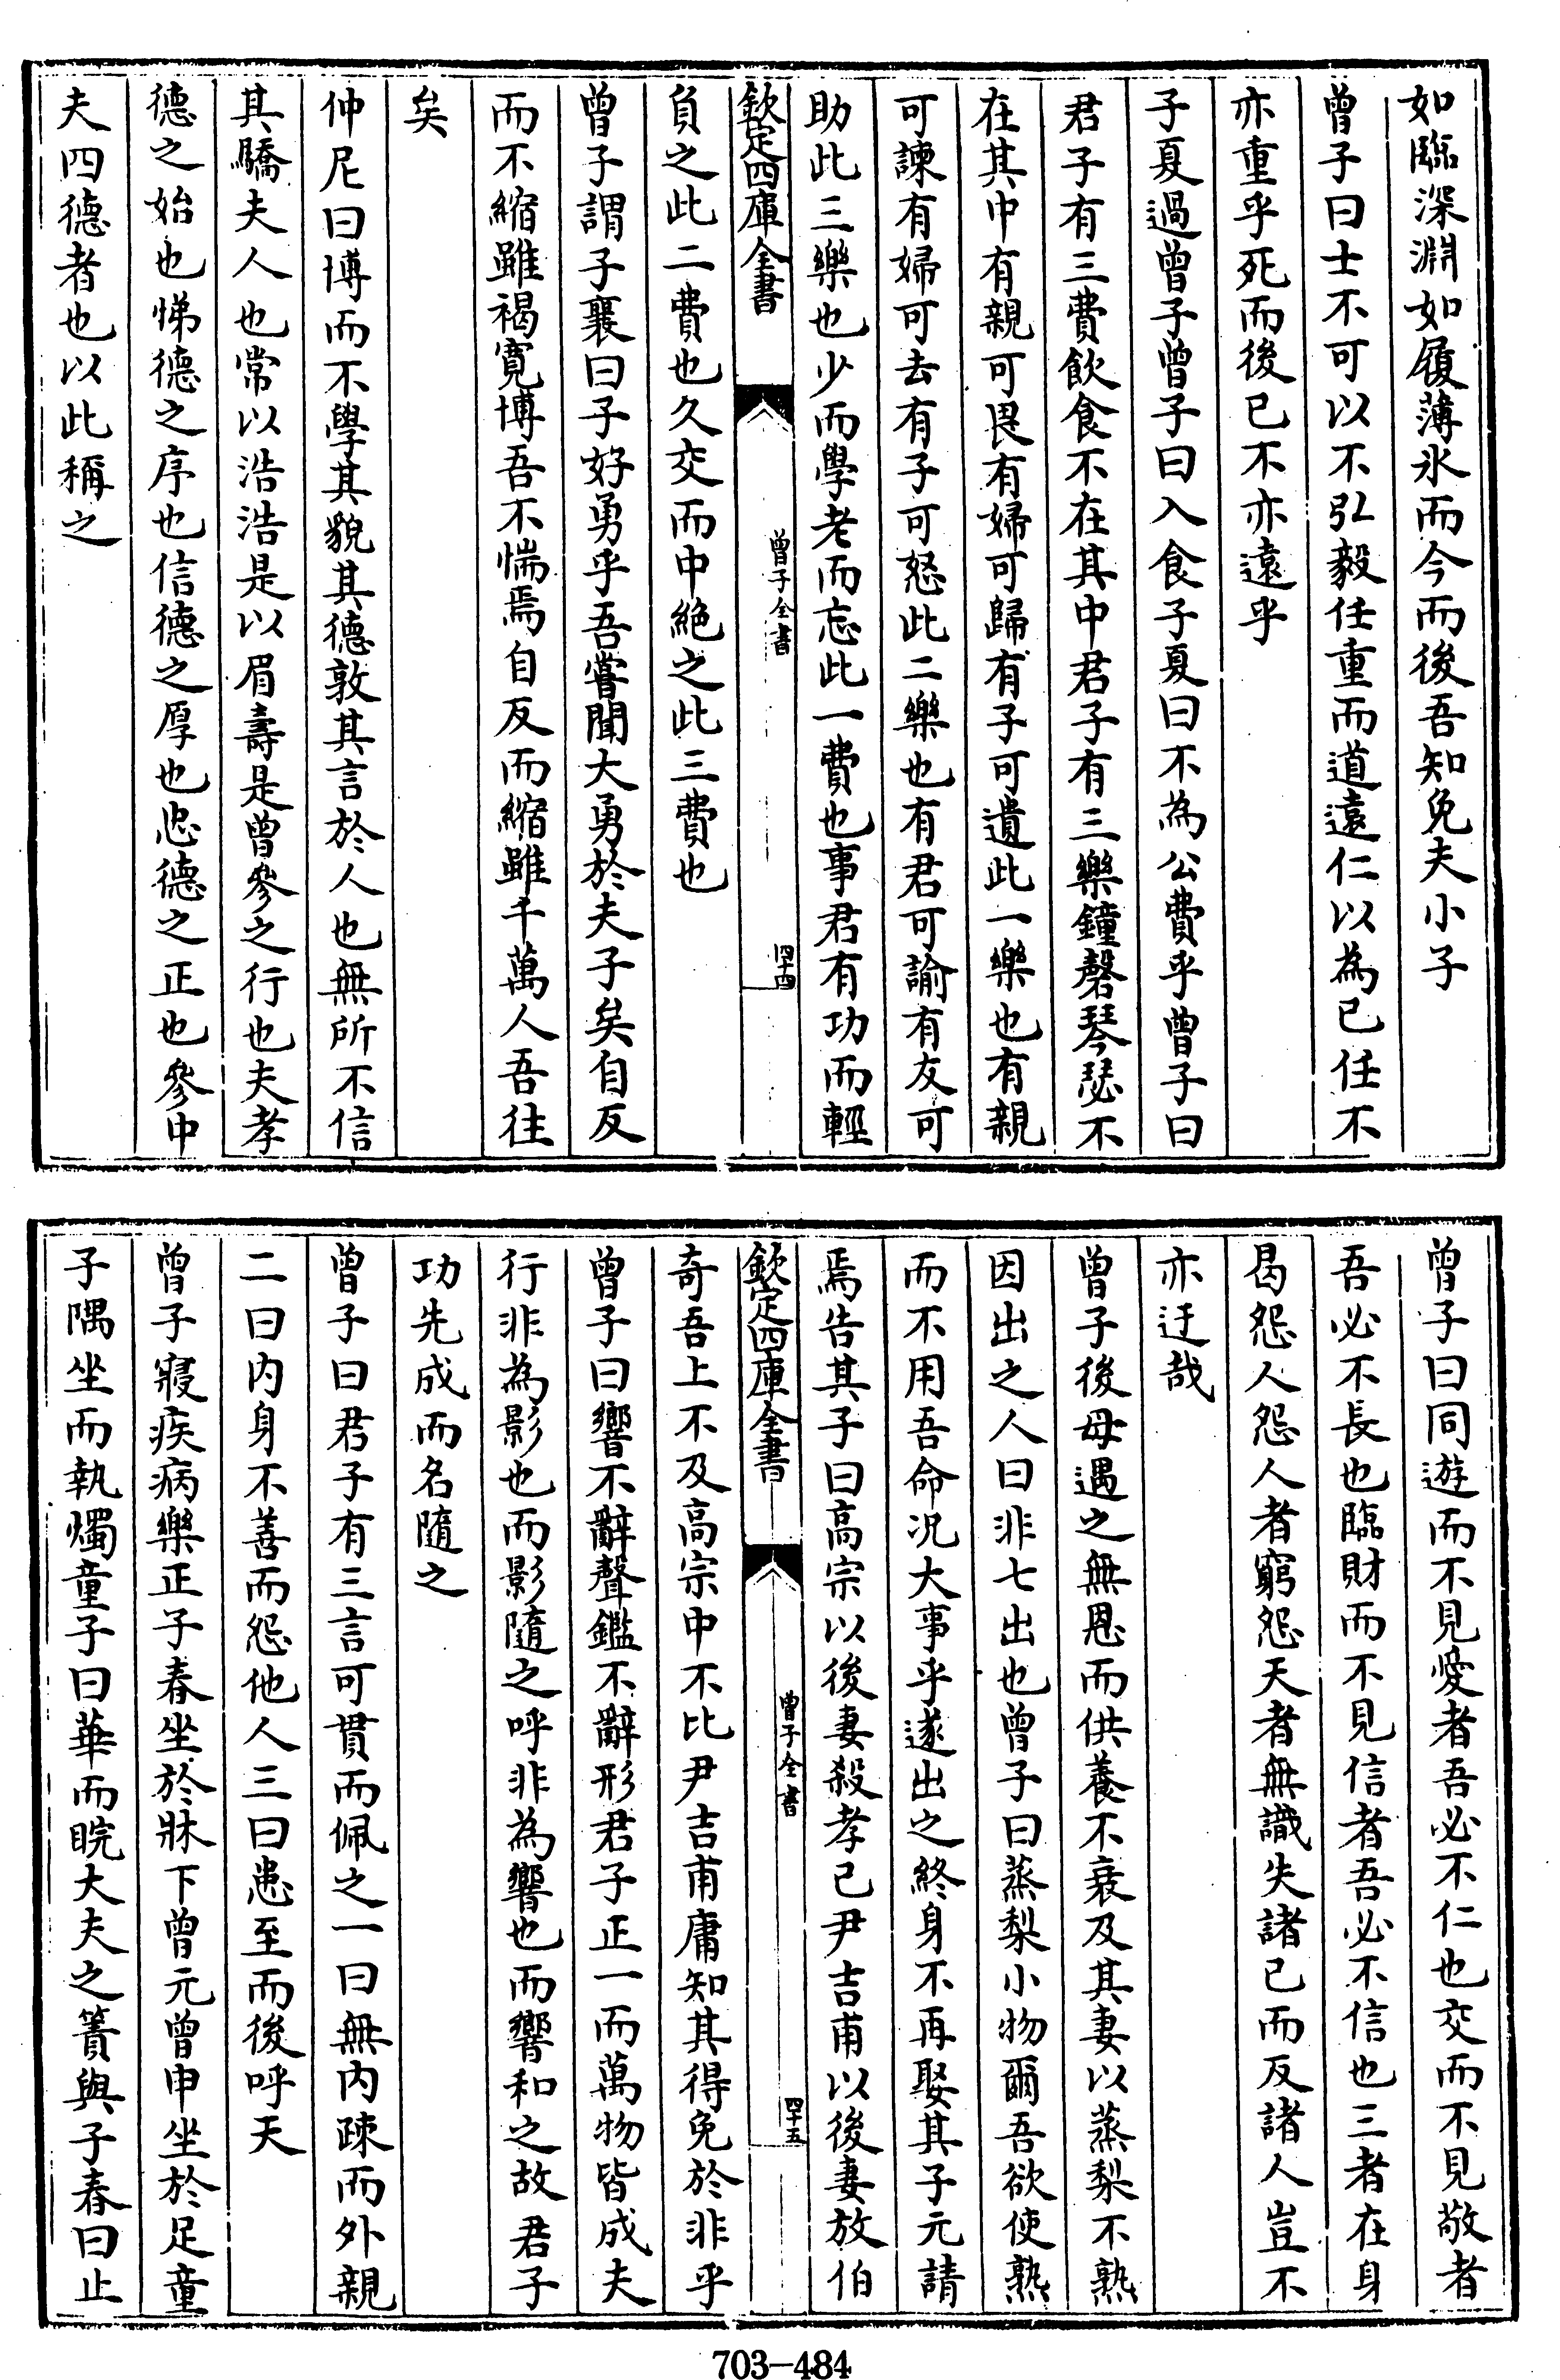 如臨深淵如履薄氷而今而後吾知免夫小子
曾子曰士不可以不弘毅任重而道遠仁以為己任不
亦重乎死而後已不亦遠乎
子夏過曾子曾子曰入食子夏曰不為公費乎曾子曰
君子有三費飲食不在其中君子有三樂鐘磬琴瑟不
在其中有親可畏有婦可歸有子可遺此一樂也有親
可諫有婦可去有子可怒此二樂也有君可諭有友可
助此三樂也少而學老而忘此一費也事君有功而輕
欽定四庫全書
曾子全書
四十四
負之此二費也久交而中絶之此三費也
曾子謂子襄曰子好勇乎吾嘗聞大勇於夫子矣自反
而不縮雖褐寛博吾不惴焉自反而縮雖千萬人吾往
矣
仲尼曰博而不學其貌其德敦其言於人也無所不信
其驕夫人也常以浩浩是以眉壽是曾參之行也夫孝
德之始也悌德之序也信德之厚也忠德之正也參中
夫四德者也以此稱之
曾子曰同遊而不見愛者吾必不仁也交而不見敬者
吾必不長也臨財而不見信者吾必不信也三者在身
曷怨人怨人者窮怨天者無識失諸己而反諸人豈不
亦迂哉
曾子後母遇之無恩而供養不衰及其妻以蒸梨不熟
因出之人曰非七出也曾子曰蒸梨小物爾吾欲使熟
而不用吾命况大事乎遂出之終身不再娶其子元請
焉告其子曰高宗以後妻殺孝己尹吉甫以後妻放伯
欽定四庫全書
曾子全書
四十五
奇吾上不及高宗中不比尹吉甫庸知其得免於非乎
曾子曰響不辭聲鑑不辭形君子正一而萬物皆成夫
行非為影也而影隨之呼非為響也而響和之故君子
功先成而名隨之
曾子曰君子有三言可貫而佩之一曰無内疎而外親
二曰内身不善而怨他人三曰患至而後呼天
曾子寢疾病樂正子春坐於牀下曾元曾申坐於足童
子隅坐而執燭童子曰華而睆大夫之簀與子春曰止
703-484